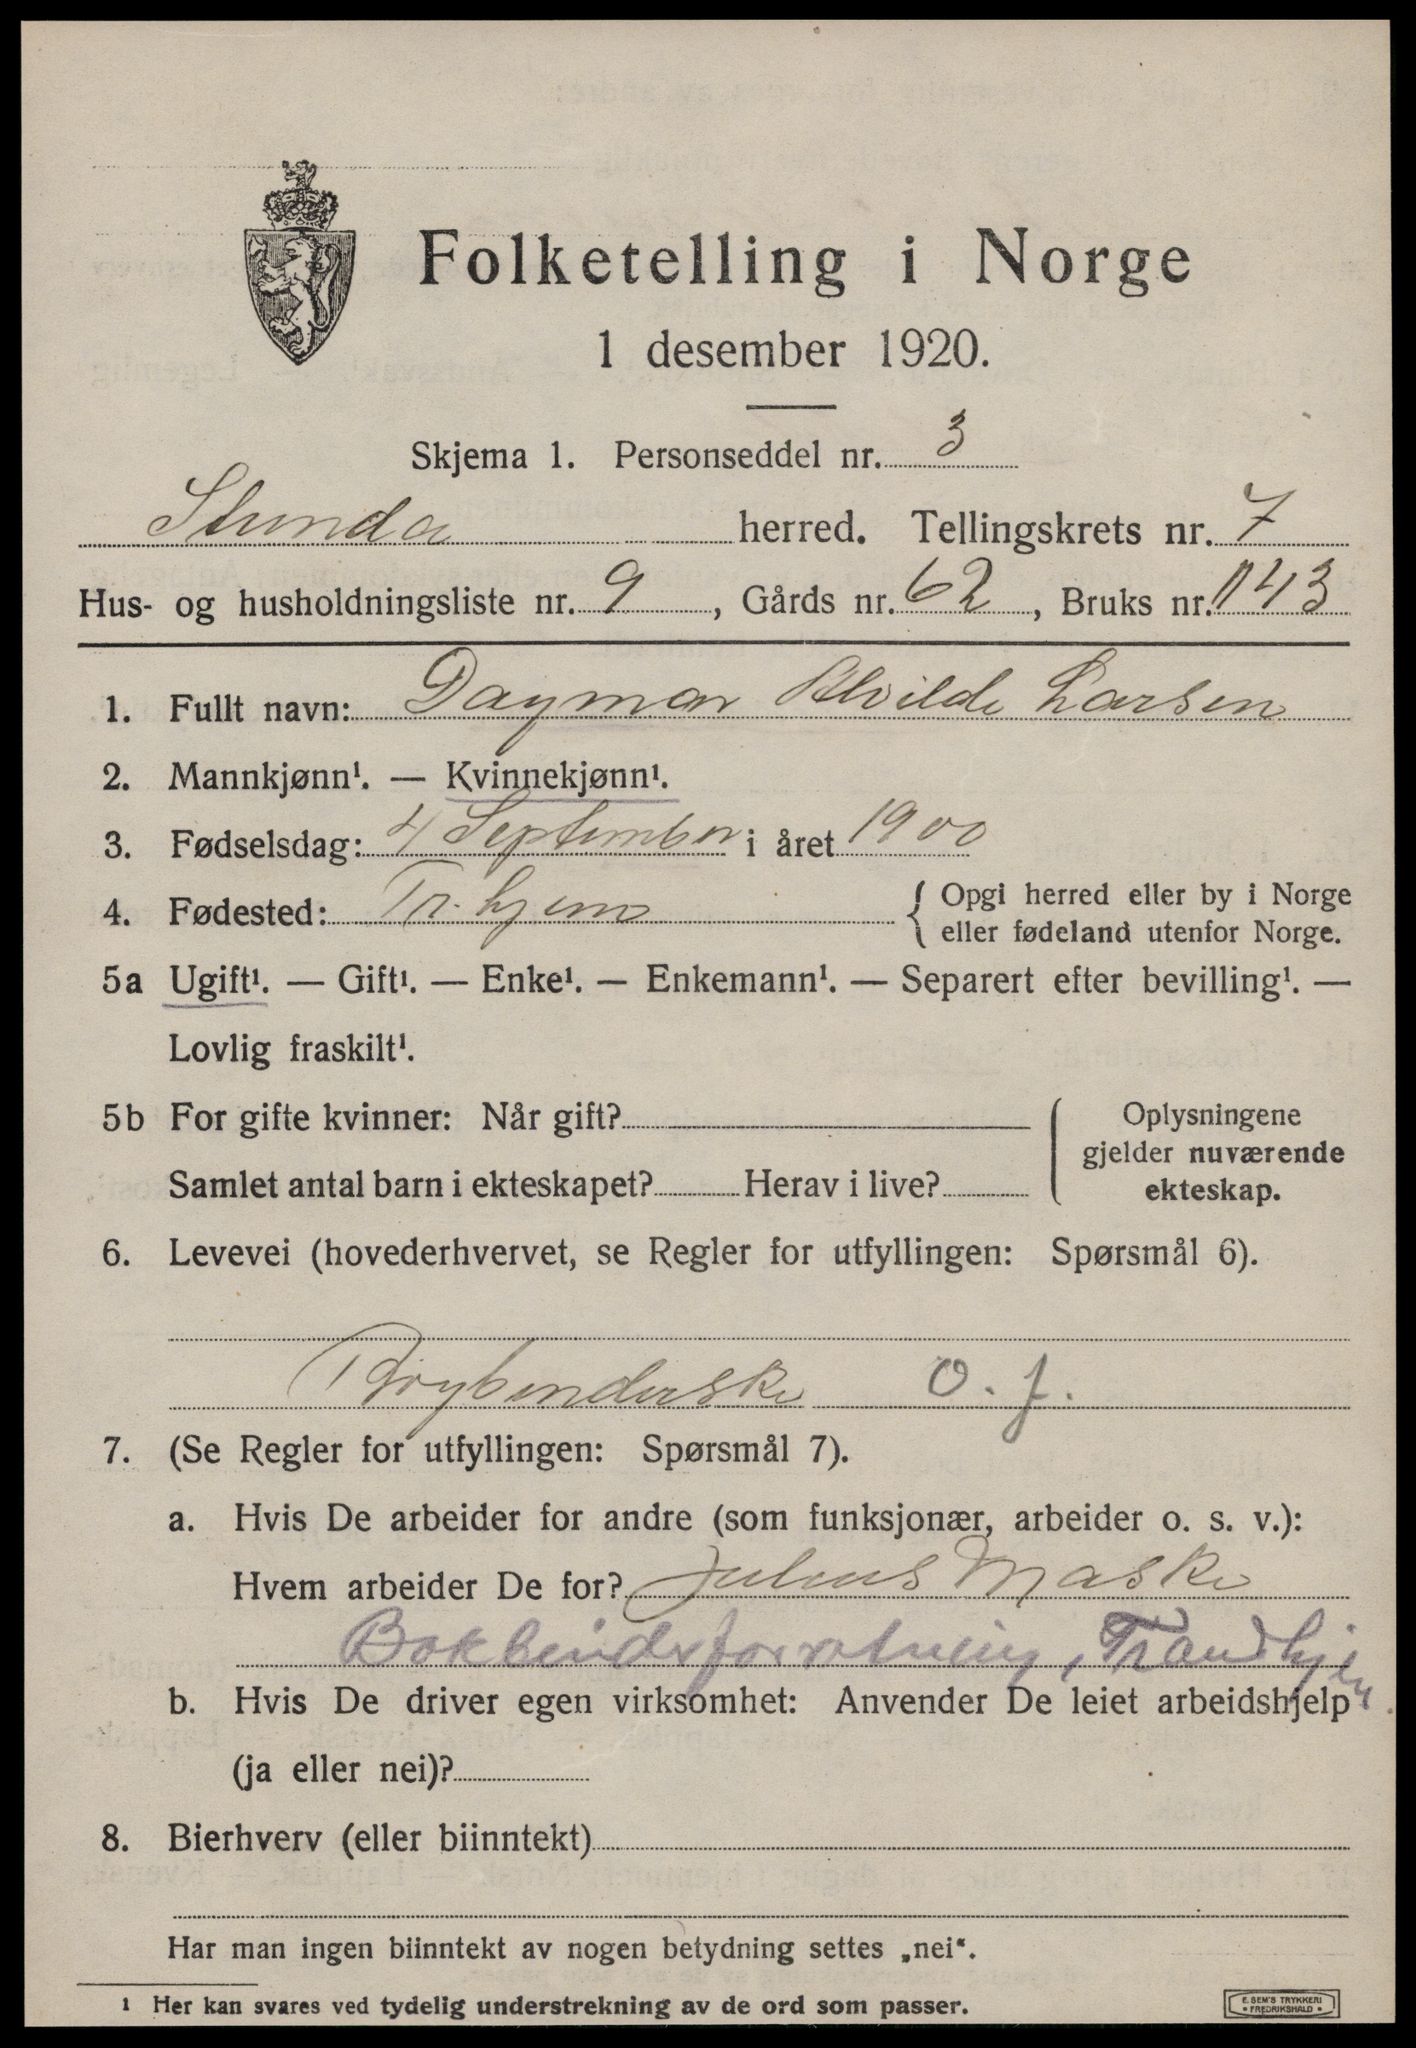 Folketelling i Norge
1 desember 1920.
Skjema 1. Personseddel nr. 3
Strinda herred. Tellingskrets nr. 7
Hus- og husholdningsliste nr. 9, Gårds nr. 62, Bruks nr. 143
1. Fullt navn: Dagmar Alvilde Larsen
2. Mannkjønn¹. — Kvinnekjønn¹.
3. Fødselsdag: 4 September i året 1900
4. Fødested: Tr.hjem { Opgi herred eller by i Norge
eller fødeland utenfor Norge.
5a Ugift¹. — Gift¹. — Enke¹. — Enkemann¹. — Separert efter bevilling¹. —
Lovlig fraskilt¹.
5b For gifte kvinner: Når gift?
Samlet antal barn i ekteskapet? Herav i live?
Oplysningene
gjelder nuværende
ekteskap.
6. Levevei (hovederhvervet, se Regler for utfyllingen: Spørsmål 6).
o. f.
7. (Se Regler for utfyllingen: Spørsmål 7).
a. Hvis De arbeider for andre (som funksjonær, arbeider o. s. v.):
Hvem arbeider De for? Julius Maske
Bokbinderforretning, Trondhjem.
b. Hvis De driver egen virksomhet: Anvender De leiet arbeidshjelp
(ja eller nei)?
8. Bierhverv (eller biinntekt)
Har man ingen biinntekt av nogen betydning settes „nei“.
¹ Her kan svares ved tydelig understrekning av de ord som passer.
E. SEM'S TRYKKERI
• FREDRIKSHALD •